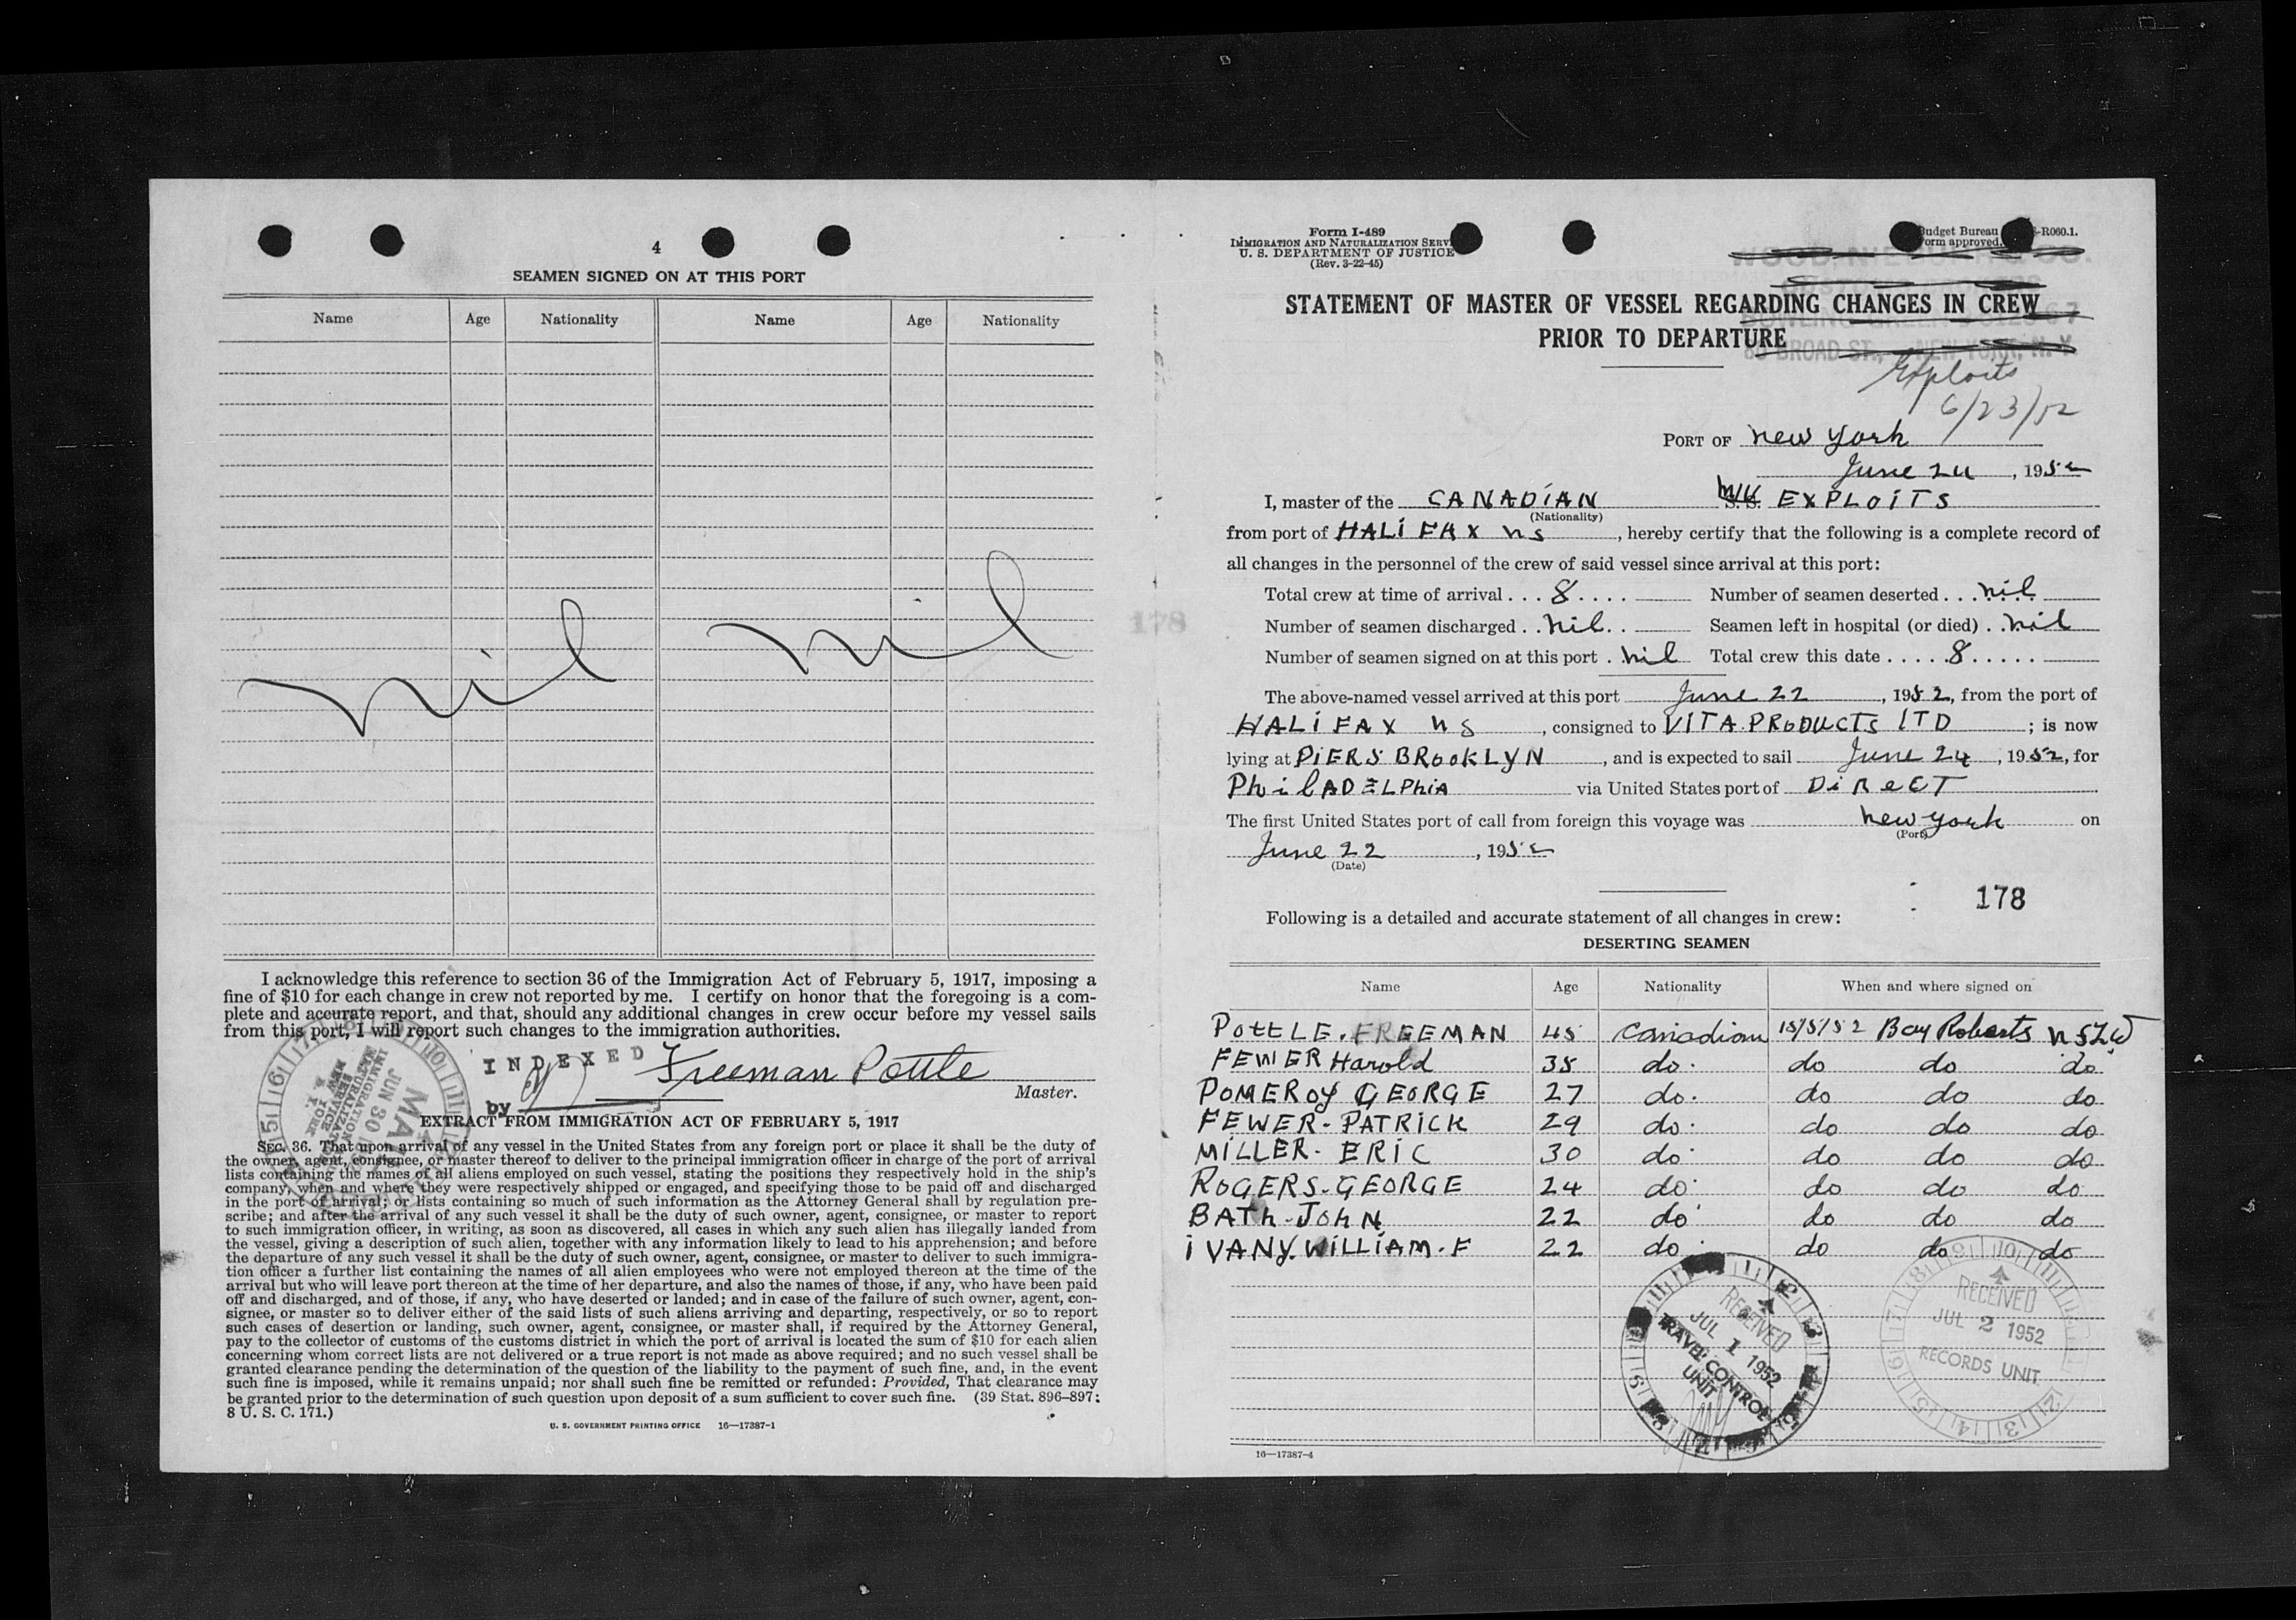 4
SEAMEN SIGNED ON AT THIS PORT
Name Age Nationality Name Age Nationality
nil nil
I acknowledge this reference to section 36 of the Immigration Act of February 5, 1917, imposing a
fine of $10 for each change in crew not reported by me. I certify on honor that the foregoing is a com-
plete and accurate report, and that, should any additional changes in crew occur before my vessel sails
from this port, I will report such changes to the immigration authorities.
INDEXED
Freeman Pottle
Master.
by
EXTRACT FROM IMMIGRATION ACT OF FEBRUARY 5, 1917
SEC. 36. That upon arrival of any vessel in the United States from any foreign port or place it shall be the duty of
the owner, agent, consignee, or master thereof to deliver to the principal immigration officer in charge of the port of arrival
lists containing the names of all aliens employed on such vessel, stating the positions they respectively hold in the ship's
company, when and where they were respectively shipped or engaged, and specifying those to be paid off and discharged
in the port of arrival; or lists containing so much of such information as the Attorney General shall by regulation pre-
scribe; and after the arrival of any such vessel it shall be the duty of such owner, agent, consignee, or master to report
to such immigration officer, in writing, as soon as discovered, all cases in which any such alien has illegally landed from
the vessel, giving a description of such alien, together with any information likely to lead to his apprehension; and before
the departure of any such vessel it shall be the duty of such owner, agent, consignee, or master to deliver to such immigra-
tion officer a further list containing the names of all alien employees who were not employed thereon at the time of the
arrival but who will leave port thereon at the time of her departure, and also the names of those, if any, who have been paid
off and discharged, and of those, if any, who have deserted or landed; and in case of the failure of such owner, agent, con-
signee, or master so to deliver either of the said lists of such aliens arriving and departing, respectively, or so to report
such cases of desertion or landing, such owner, agent, consignee, or master shall, if required by the Attorney General,
pay to the collector of customs of the customs district in which the port of arrival is located the sum of $10 for each alien
concerning whom correct lists are not delivered or a true report is not made as above required; and no such vessel shall be
granted clearance pending the determination of the question of the liability to the payment of such fine, and, in the event
such fine is imposed, while it remains unpaid; nor shall such fine be remitted or refunded: Provided, That clearance may
be granted prior to the determination of such question upon deposit of a sum sufficient to cover such fine. (39 Stat. 896–897;
8 U. S. C. 171.)
U. S. GOVERNMENT PRINTING OFFICE 16—17387-1
IMMIGRATION
NATURALIZATION
SERVICE
NEW YORK
JUN 30
178
Form I-489
IMMIGRATION AND NATURALIZATION SERV
U. S. DEPARTMENT OF JUSTICE
(Rev. 3-22-45)
Budget Bureau -R060.1.
Form approved.
BROAD ST., NEW YORK, N. Y.
STATEMENT OF MASTER OF VESSEL REGARDING CHANGES IN CREW
PRIOR TO DEPARTURE
Exploits
6/23/52
PORT OF new york
June 24, 1952
I, master of the CANADIAN M/V S. S. EXPLOITS
(Nationality)
from port of HALIFAX NS, hereby certify that the following is a complete record of
all changes in the personnel of the crew of said vessel since arrival at this port:
Total crew at time of arrival . . . 8 . . . . Number of seamen deserted . . . nil
Number of seamen discharged . . nil . . Seamen left in hospital (or died) . . nil
Number of seamen signed on at this port . nil Total crew this date . . . . . 8 . . . . .
The above-named vessel arrived at this port June 22, 1952, from the port of
HALIFAX NS, consigned to VITA PRODUCTS LTD; is now
lying at PIERS BROOKLYN, and is expected to sail June 24, 1952, for
PhilADELPhiA via United States port of DiReCT
The first United States port of call from foreign this voyage was new york on
(Port)
June 22, 1952
(Date)
178
Following is a detailed and accurate statement of all changes in crew:
DESERTING SEAMEN
Name Age Nationality When and where signed on
POTTLE. FREEMAN 45 Canadian 15/5/52 Bay Roberts
FEWER Harold 35 do. do do do
POMEROY GEORGE 27 do. do do do
FEWER- PATRICK 29 do. do do do
MILLER- ERIC 30 do. do do do
ROGERS-GEORGE 24 do. do do do
BATh-JOhN 22 do do do do
iVANY. WILLIAM. F 22 do do do do
RECEIVED
JUL 1 1952
TRAVEL CONTROL
UNIT
RECEIVED
JUL 2 1952
RECORDS UNIT
16—17387-4